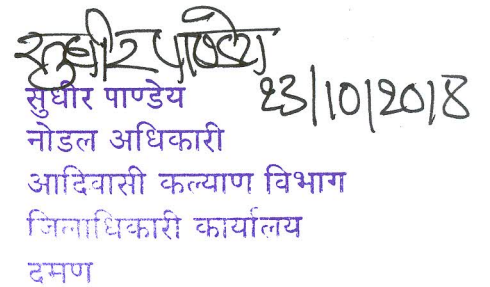 सुधीर पाण्डेय
23/10/2018
सुधीर पाण्डेय
नोडल अधिकारी
आदिवासी कल्याण विभाग
जिलाधिकारी कार्यालय
दमण